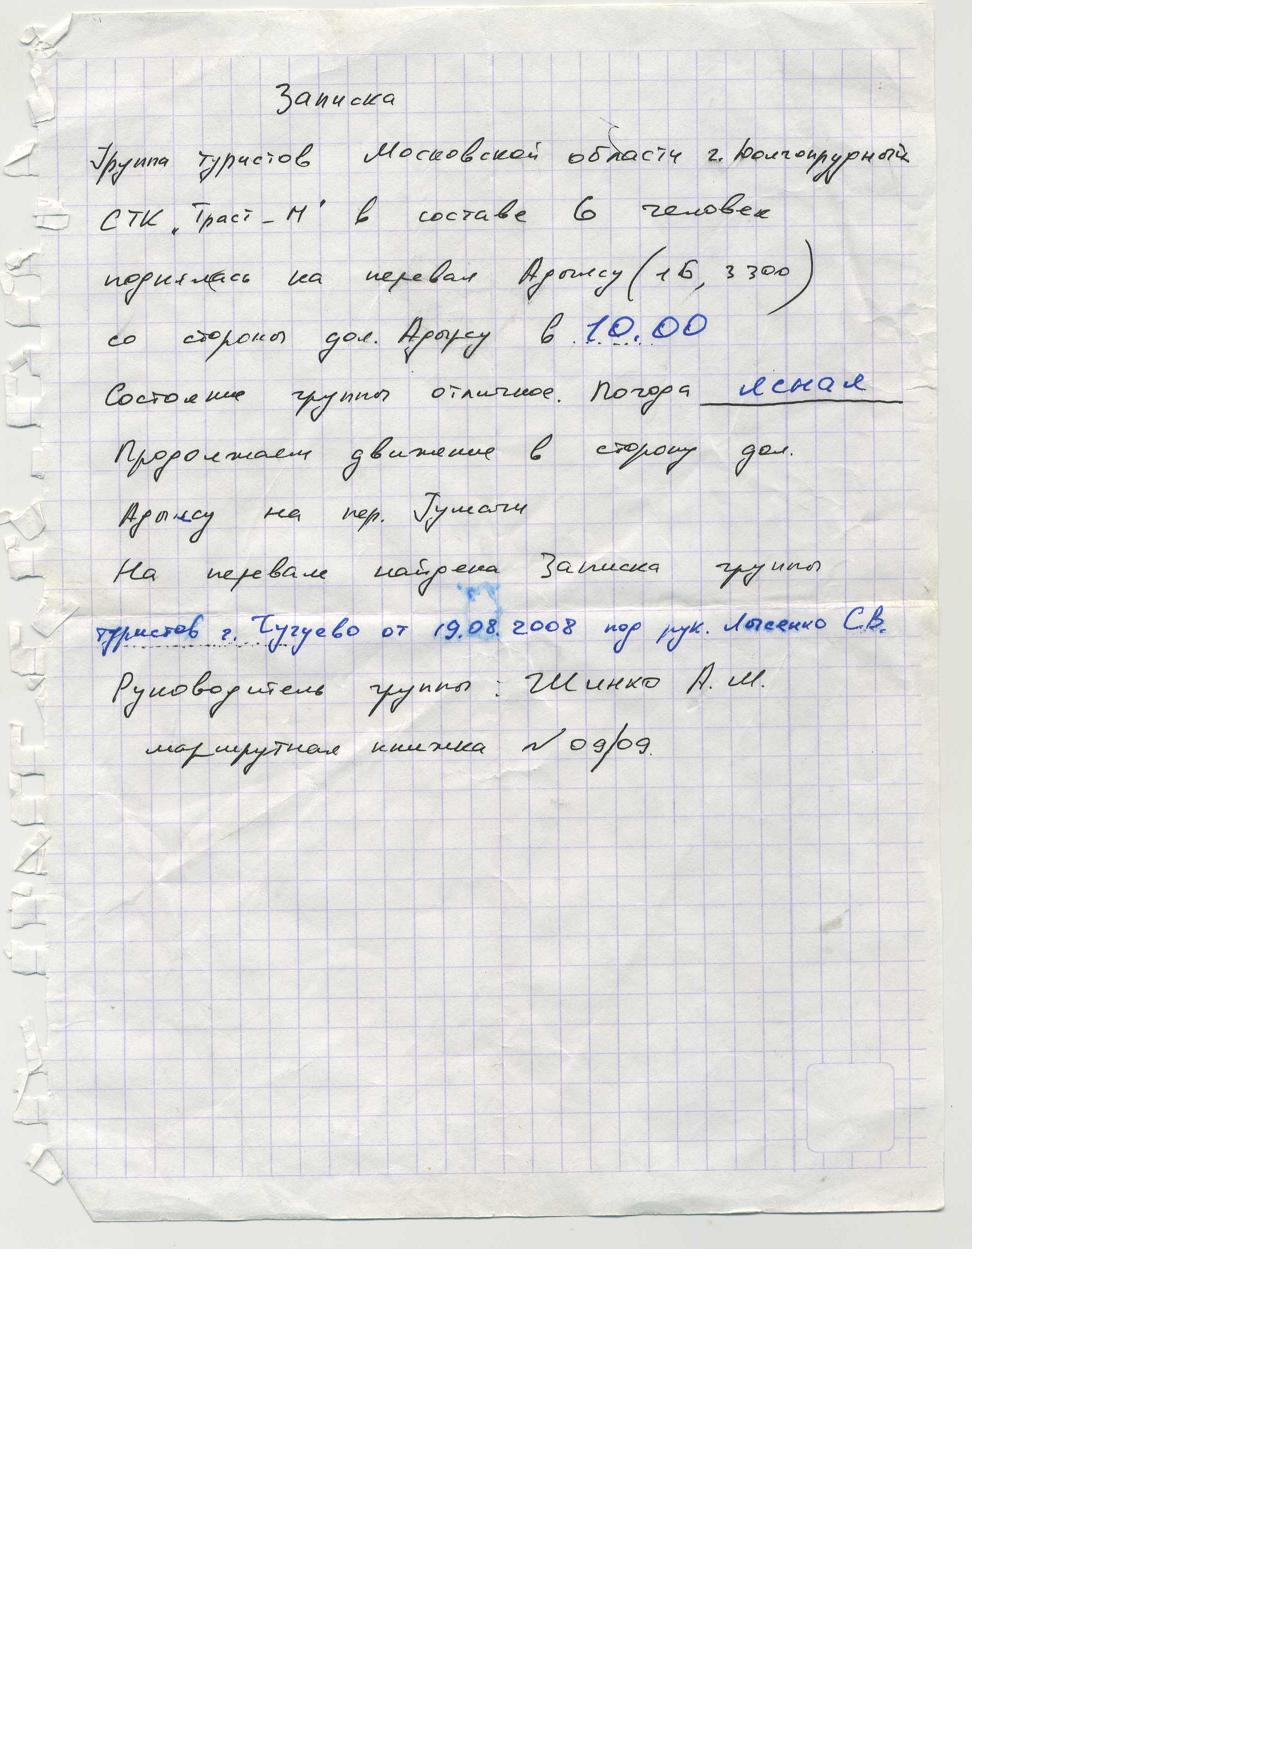 Записка
Группа туристов Московской области г. Долгопрудный
СТК "Траст-М" в составе 6 человек
поднялась на перевал Адылсу (1Б, 3300)
со стороны дол. Адырсу в 10.00
Состояние группы отличное. Погода ясная
Продолжаем движение в сторону дол.
Адылсу на пер. Гумачи
На перевале найдена Записка группы
туристов г. Чугуево от 19.08.2008 под рук. Лысенко С.В.
Руководитель группы: Шинко А.М.
маршрутная книжка № 09/09.